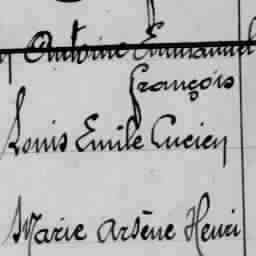 Antoine Emmanuel
François
Louis Emile Lucien
Marie Arsène Henri